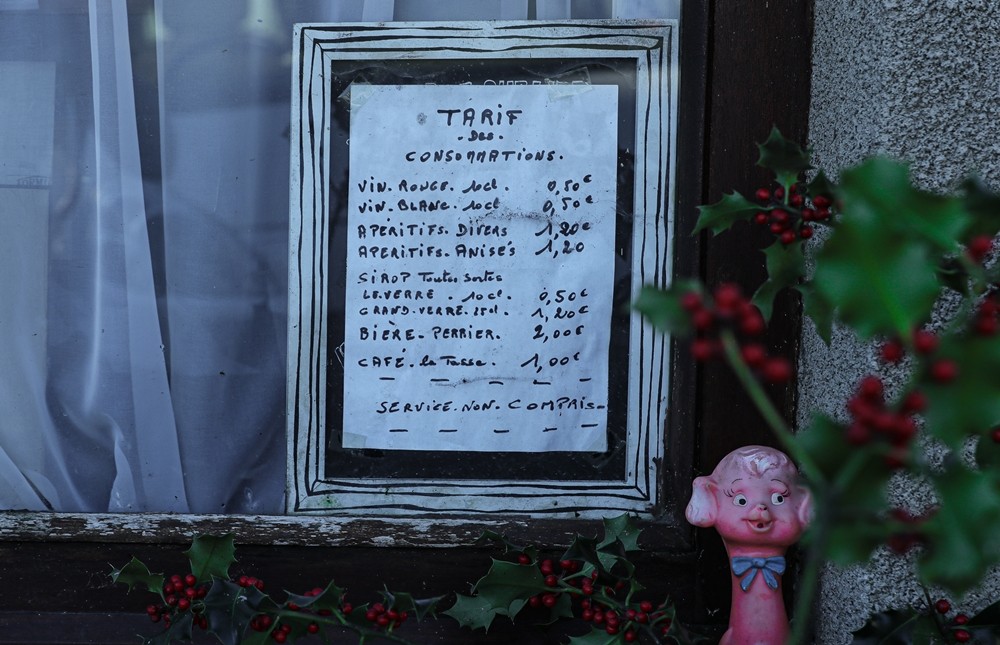 TARIF
- DES -
CONSOMMATIONS.
VIN. ROUGE. 10cl. 0,50€
VIN. BLANC. 10cl 0,50€
APÉRITIFS. DIVERS 1,20€
APERITIFS. ANISÉS 1,20
SIROP Toutes Sortes
LE.VERRE . 10cl. 0,50€
GRAND.VERRE. 25cl. 1,20€
BIÈRE. PERRIER. 2,00€
CAFÉ. la Tasse. 1,00€
SERVICE.NON. COMPRIS.